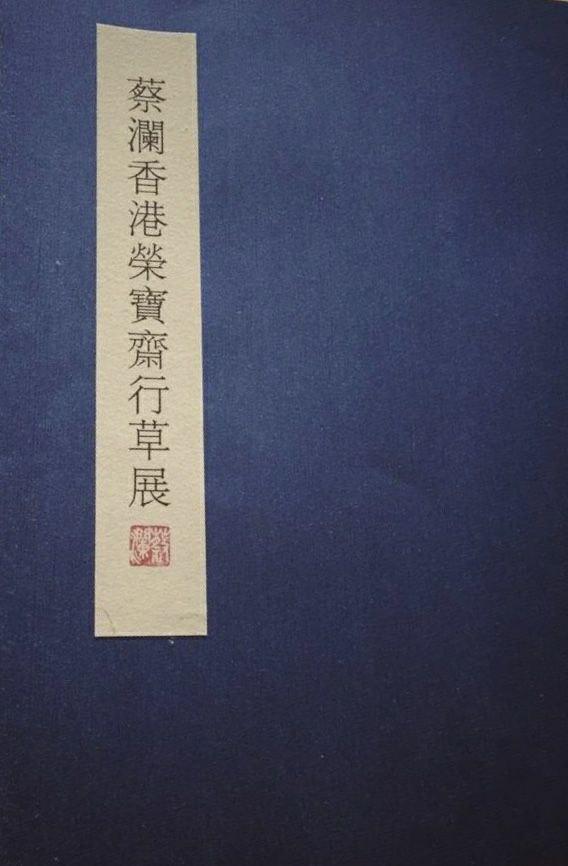 蔡瀾香港榮寶齋行草展
蔡瀾